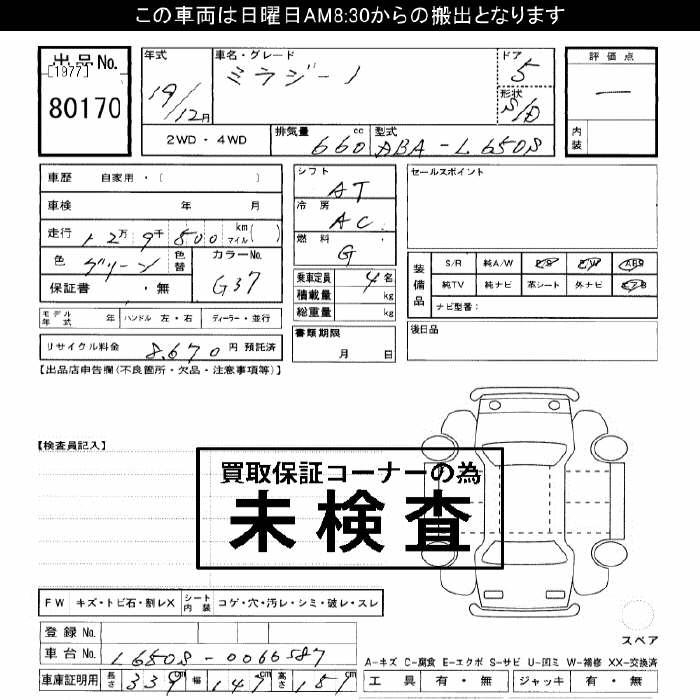 この車両は日曜日AM8:30からの搬出となります
出品No.
[1977]
80170
年式
19/12月
車名・グレード
ミラジーノ
ドア
5
形状
S/D
2WD・4WD
排気量
660cc
型式
ABA-L650S
評価点
内装
車歴 自家用・( )
車検 年 月
走行 12万9千800 km マイル( )
色 グリーン
色替
カラーNo.
G37
保証書 ・無
モデル年式 年 ハンドル 左・右 ディーラー・並行
リサイクル料金 8,670円 預託済
シフト
AT
冷房
AC
燃料
G
乗車定員 4名
積載量 kg
総重量 kg
書類期限
月 日
セールスポイント
装備品
S/R 純A/W P/S P/W ABS
純TV 純ナビ 革シート 外ナビ エアB
ナビ型番:
後日品
【出品店申告欄(不良箇所・欠品・注意事項等)】
【検査員記入】
買取保証コーナーの為
未検査
FW キズ・トビ石・割レX シート内装 コゲ・穴・汚レ・シミ・破レ・スレ
登録No.
車台No. L650S-0066587
車庫証明用 長さ 339cm 幅 147cm 高さ 151cm
スペア
A-キズ C-腐食 E-エクボ S-サビ U-凹ミ W-補修 XX-交換済
工具 有・無 ジャッキ 有・無